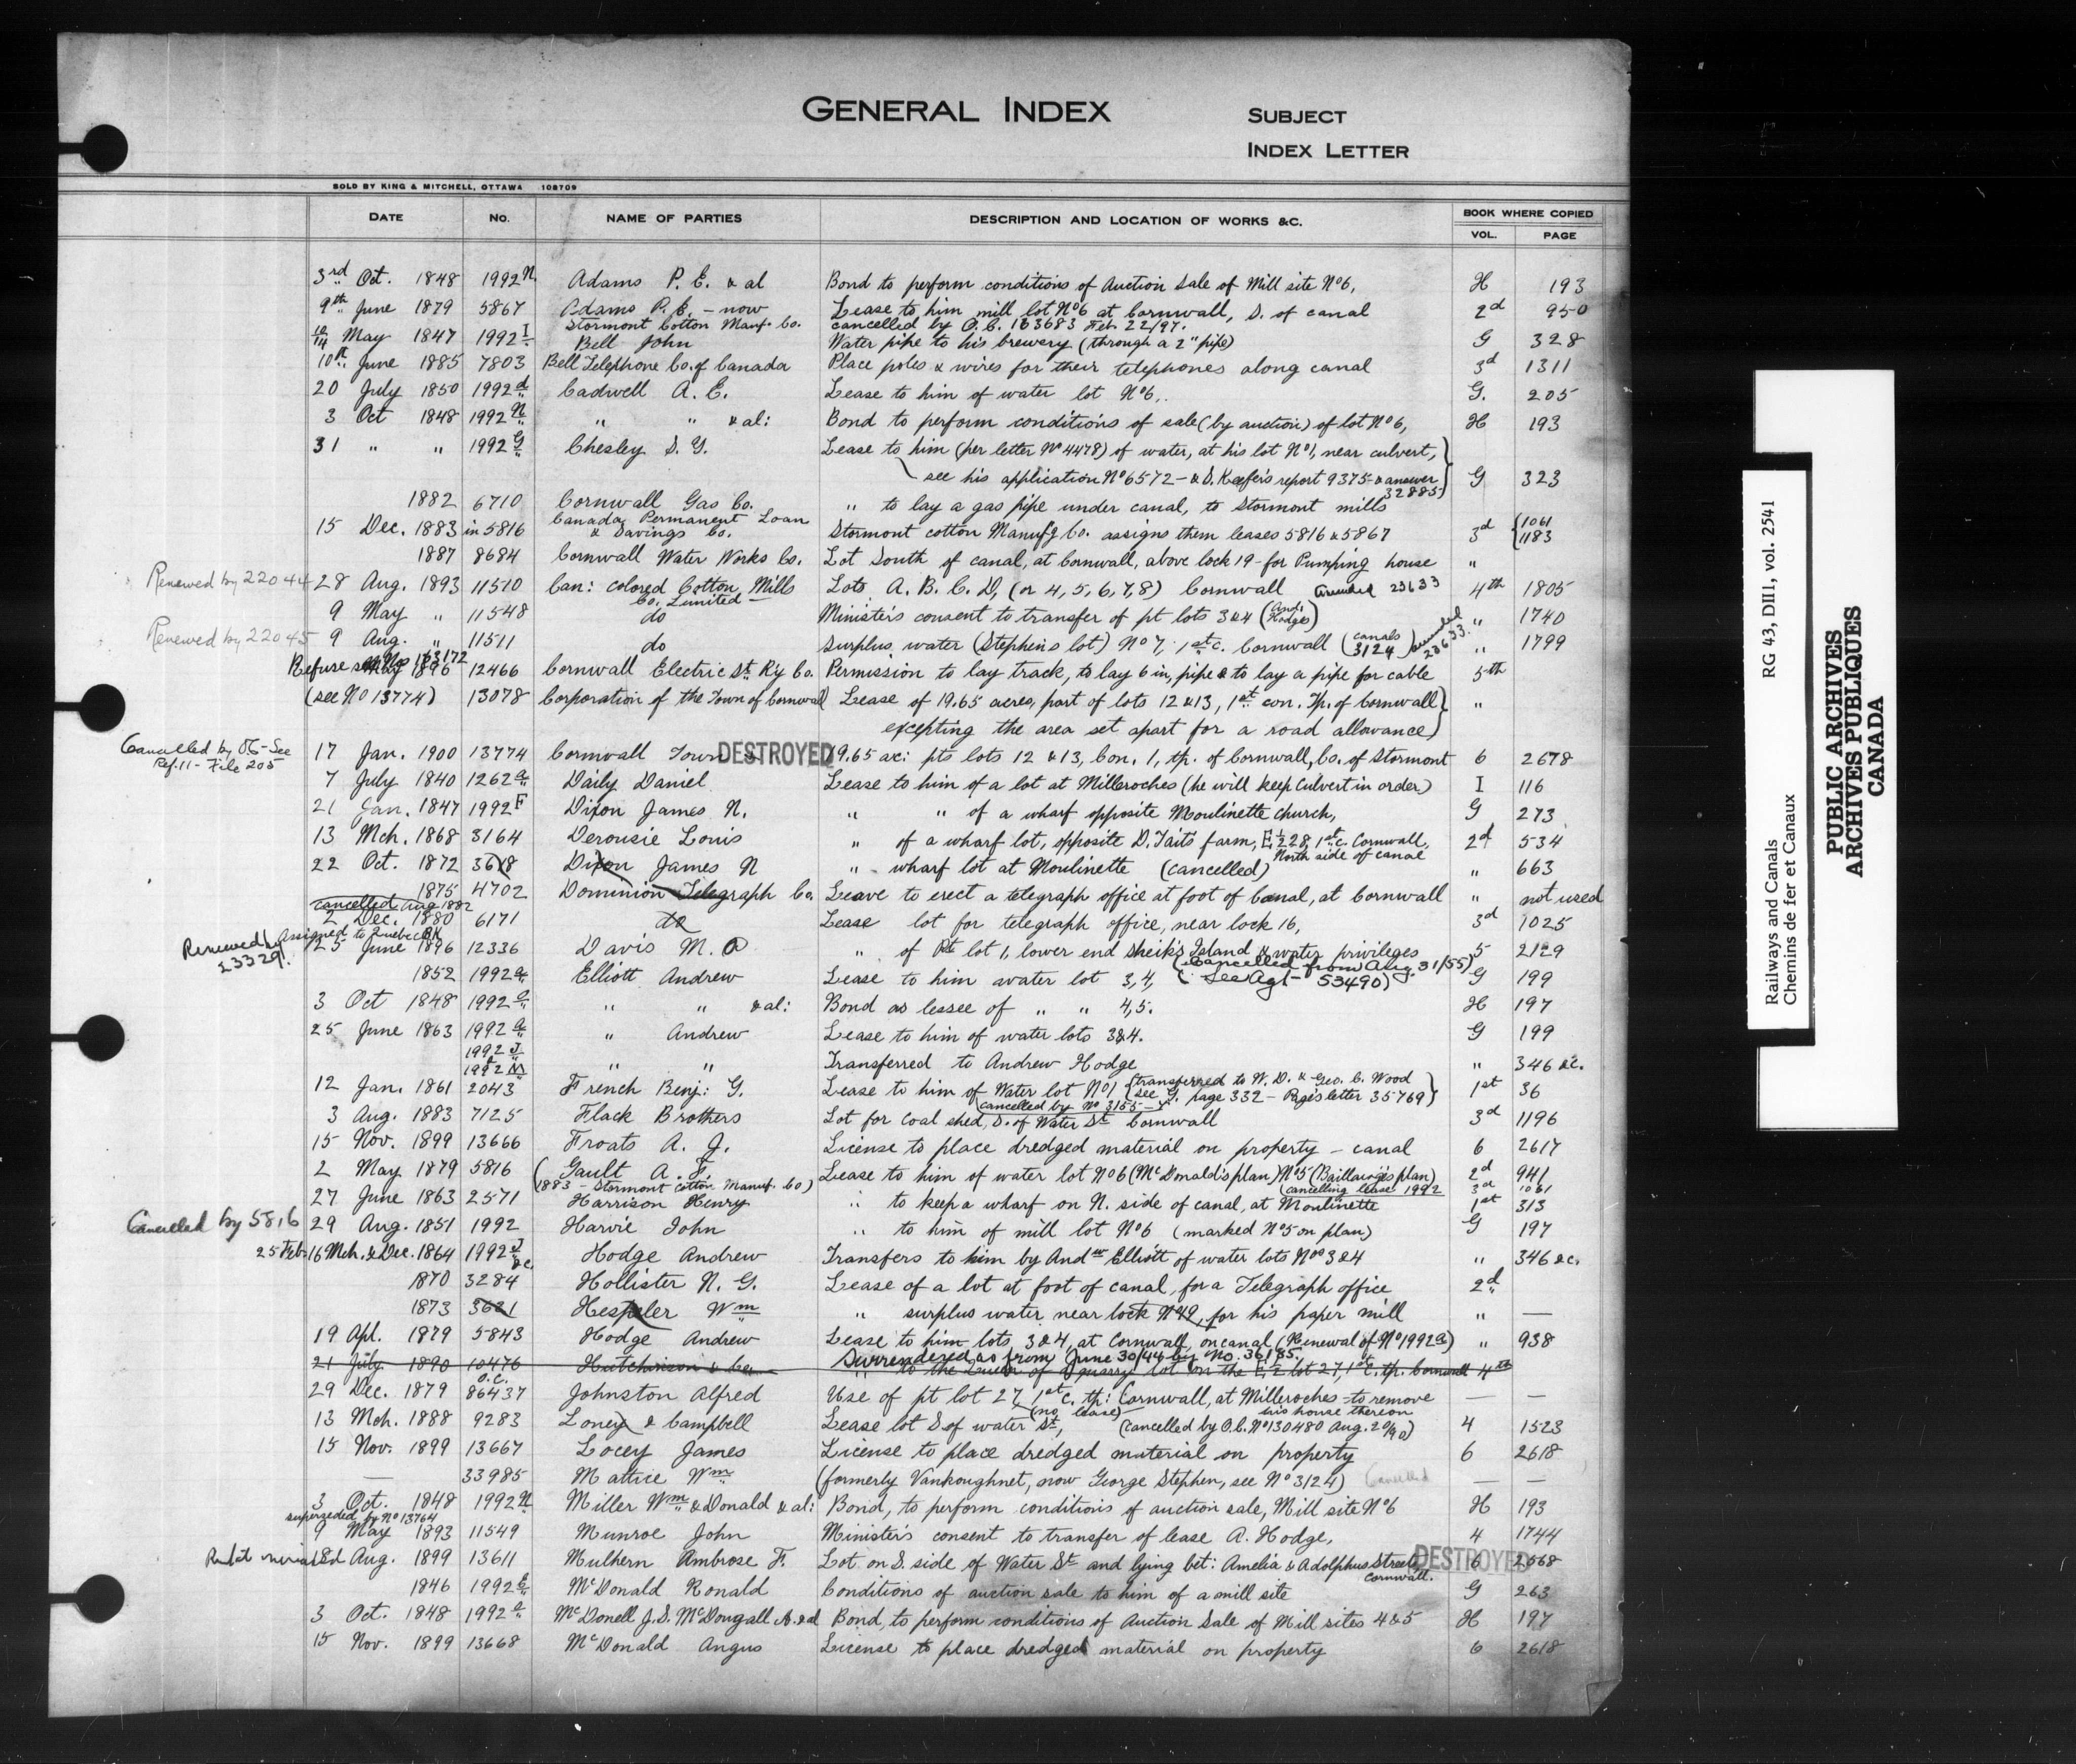 GENERAL INDEX
SUBJECT
INDEX LETTER
SOLD BY KING & MITCHELL, OTTAWA 108709
DATE No. NAME OF PARTIES DESCRIPTION AND LOCATION OF WORKS &C. BOOK WHERE COPIED
VOL. PAGE
3rd Oct. 1848 1992 N. Adams P. E. & al Bond to perform conditions of Auction Sale of Mill site No 6, H 193
9th June 1879 5867 Adams P. E. – now Lease to him mill lot No 6 at Cornwall, S. of canal 2d 950
Stormont Cotton Manf. Co. cancelled by O.C. 163683 Feb. 22/97.
May 1847 1992 I Bell John Water pipe to his brewery (through a 2" pipe) G 328
10th June 1885 7803 Bell Telephone Co. of Canada Place poles & wires for their telephones along canal 3d 1311
20 July 1850 1992 d Cadwell A. E. Lease to him of water lot No 6, G. 205
3 Oct 1848 1992 N " " & al: Bond to perform conditions of sale (by auction) of lot No 6, H 193
31 " " 1992 G Chesley S. Y. Lease to him (per letter No 4478) of water, at his lot No 1, near culvert,
see his application No 6572 – & S. Keefer's report 9375 & answer G 323
32885
1882 6710 Cornwall Gas Co. " to lay a gas pipe under canal, to Stormont mills
15 Dec. 1883 in 5816 Canada Permanent Loan & Savings Co. Stormont cotton Manuf'g Co. assigns them leases 5816 & 5867 3d {1061 1183
1887 8684 Cornwall Water Works Co. Lot South of canal, at Cornwall, above lock 19 – for Pumping house "
Renewed by 22044 28 Aug. 1893 11510 Can: colored Cotton Mills Lots A. B. C. D, (or 4, 5, 6, 7, 8) Cornwall 23633 4th 1805
Co. Limited
9 May " 11548 do Minister's consent to transfer of pt lots 3 & 4 (And. Hodges) " 1740
Renewed by 22045 9 Aug. " 11511 do Surplus water (Stephens lot) No 7, 1st c. Cornwall (canals 3124) 23633. " 1799
1896 12466 Cornwall Electric St. R'y Co. Permission to lay track, to lay 6 in, pipe & to lay a pipe for cable 5th
(see No 13774) 13078 Corporation of the Town of Cornwall Lease of 19.65 acres, part of lots 12 & 13, 1st con. Tp. of Cornwall "
excepting the area set apart for a road allowance
Cancelled by OC – See
Ref. 11 – File 205
17 Jan. 1900 13774 Cornwall Town DESTROYED 19.65 ac: pts lots 12 & 13, Con. 1, tp. of Cornwall, Co. of Stormont 6 2678
7 July 1840 1262 a Daily Daniel Lease to him of a lot at Milleroches (he will keep culvert in order) I 116
21 Jan. 1847 1992 F Dixon James N. " " of a wharf opposite Moulinette church, G 273
13 Mch. 1868 3164 Derousie Louis " of a wharf lot, opposite D. Tait's farm, E ½ 28, 1st c. Cornwall, 2d 534
North side of canal
22 Oct. 1872 3618 Dixon James N " wharf lot at Moulinette (cancelled) " 663
1875 4702 Dominion Telegraph Co. Leave to erect a telegraph office at foot of Canal, at Cornwall " not used
cancelled Aug 1882
2 Dec. 1880 6171 do Lease lot for telegraph office, near lock 16, 3d 1025
Assigned to Quebec Bk
Renewed by 23329. 25 June 1896 12336 Davis M. P " of Pt lot 1, lower end Sheik's Island & water privileges 5 2129
(Cancelled from Aug. 31/55)
1852 1992 a Elliott Andrew Lease to him water lot 3, 4, (See Agt – 53490) G 199
3 Oct 1848 1992 " " & al: Bond as lessee of " " 4, 5. H 197
25 June 1863 1992 a " Andrew Lease to him of water lots 3 & 4. G 199
1992 J
1992 M " " Transferred to Andrew Hodge " 346 &c.
12 Jan. 1861 2043 French Benj: G. Lease to him of Water lot No 1 {transferred to W. D. & Geo. C. Wood 1st 36
see G. page 332 – Pgis letter 35769}
cancelled by No 3155
3 Aug. 1883 7125 Flack Brothers Lot for coal shed, S. of Water St Cornwall 3d 1196
15 Nov. 1899 13666 Froats A. J. License to place dredged material on property – canal 6 2617
2 May 1879 5816 Gault A. F. Lease to him of water lot No 6 (McDonald's plan) No 5 (Baillairgé's plan) 2d 941
(1883 – Stormont Cotton Manuf. Co) (cancelling lease 1992 3d 1061
27 June 1863 2571 Harrison Henry " to keep a wharf on N. side of canal, at Moulinette 1st 313
Cancelled by 5816 29 Aug. 1851 1992 Harvie John " to him of mill lot No 6 (marked No 5 on plan) G 197
25 Feb. 16 Mch. & Dec. 1864 1992 J &c. Hodge Andrew Transfers to him by Andw Elliott of water lots Nos 3 & 4 " 346 &c.
1870 3284 Hollister N. G. Lease of a lot at foot of canal, for a Telegraph office 2d
1873 3621 Hespeler Wm " surplus water near lock No 19, for his paper mill " —
19 Apl. 1879 5843 Hodge Andrew Lease to him lots 3 & 4, at Cornwall, on canal (Renewal of No 1992 a) " 938
Surrendered as from June 30/44 by No. 36185.
21 July 1890 10476 Hutchinson & Co. " to the of a quarry lot on the E ½ lot 27, 1st c. tp. Cornwall 4th
29 Dec. 1879 O.C. 86437 Johnston Alfred Use of pt lot 27, 1st c. tp: Cornwall, at Milleroches – to remove — —
(no lease) his house thereon
13 Mch. 1888 9283 Loney & Campbell Lease lot S of water St, (cancelled by O.C. No 130480 Aug. 20/90) 4 1523
15 Nov. 1899 13667 Locey James License to place dredged material on property 6 2618
— 33985 Mattice Wm (formerly Vankoughnet, now George Stephen, see No 3124) Cancelled — —
3 Oct. 1848 1992 N Miller Wm & Donald & al: Bond, to perform conditions of auction sale, Mill site No 6 H 193
superseded by No 13764
9 May 1893 11549 Munroe John Minister's consent to transfer of lease A. Hodge, 4 1744
18 Aug. 1899 13611 Mulhern Ambrose F. Lot on S. side of Water St and lying bet: Amelia & Adolphus Streets DESTROYED 6 2568
Cornwall.
1846 1992 E McDonald Ronald Conditions of auction sale to him of a mill site G 263
3 Oct. 1848 1992 McDonell J. S. McDougall A. & al Bond, to perform conditions of Auction Sale of Mill sites 4 & 5 H 197
15 Nov. 1899 13668 McDonald Angus License to place dredged material on property 6 2618
Railways and Canals RG 43, DIII, vol. 2541
Chemins de fer et Canaux
PUBLIC ARCHIVES
ARCHIVES PUBLIQUES
CANADA